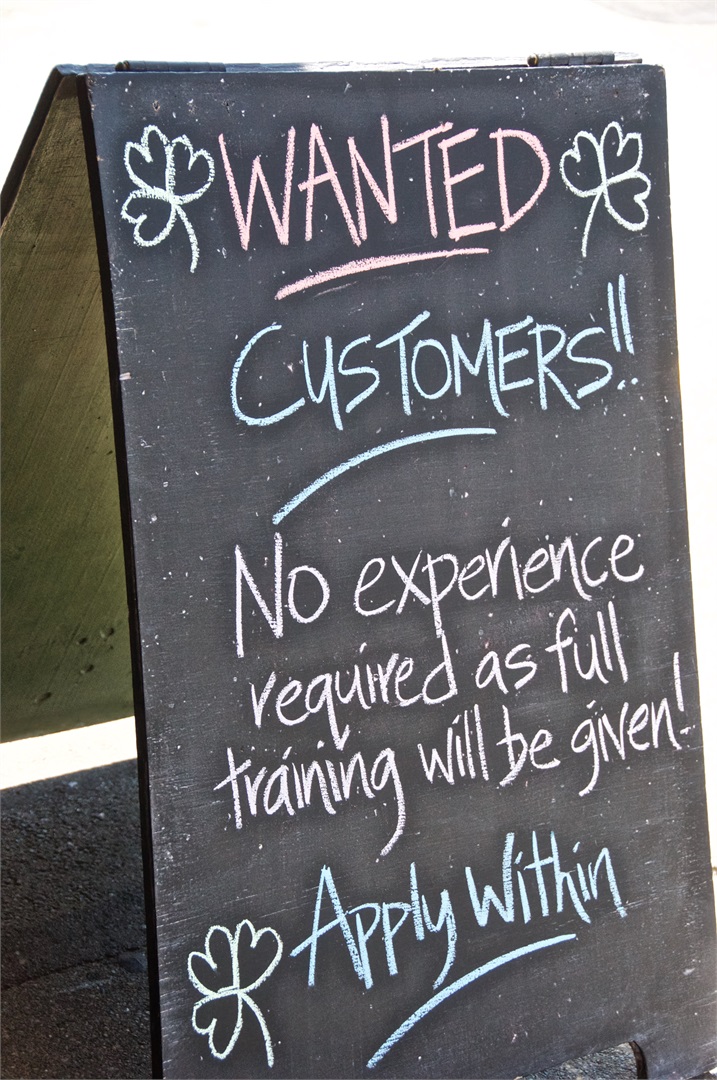 WANTED
CUSTOMERS!!
No experience
required as full
training will be given!
Apply Within